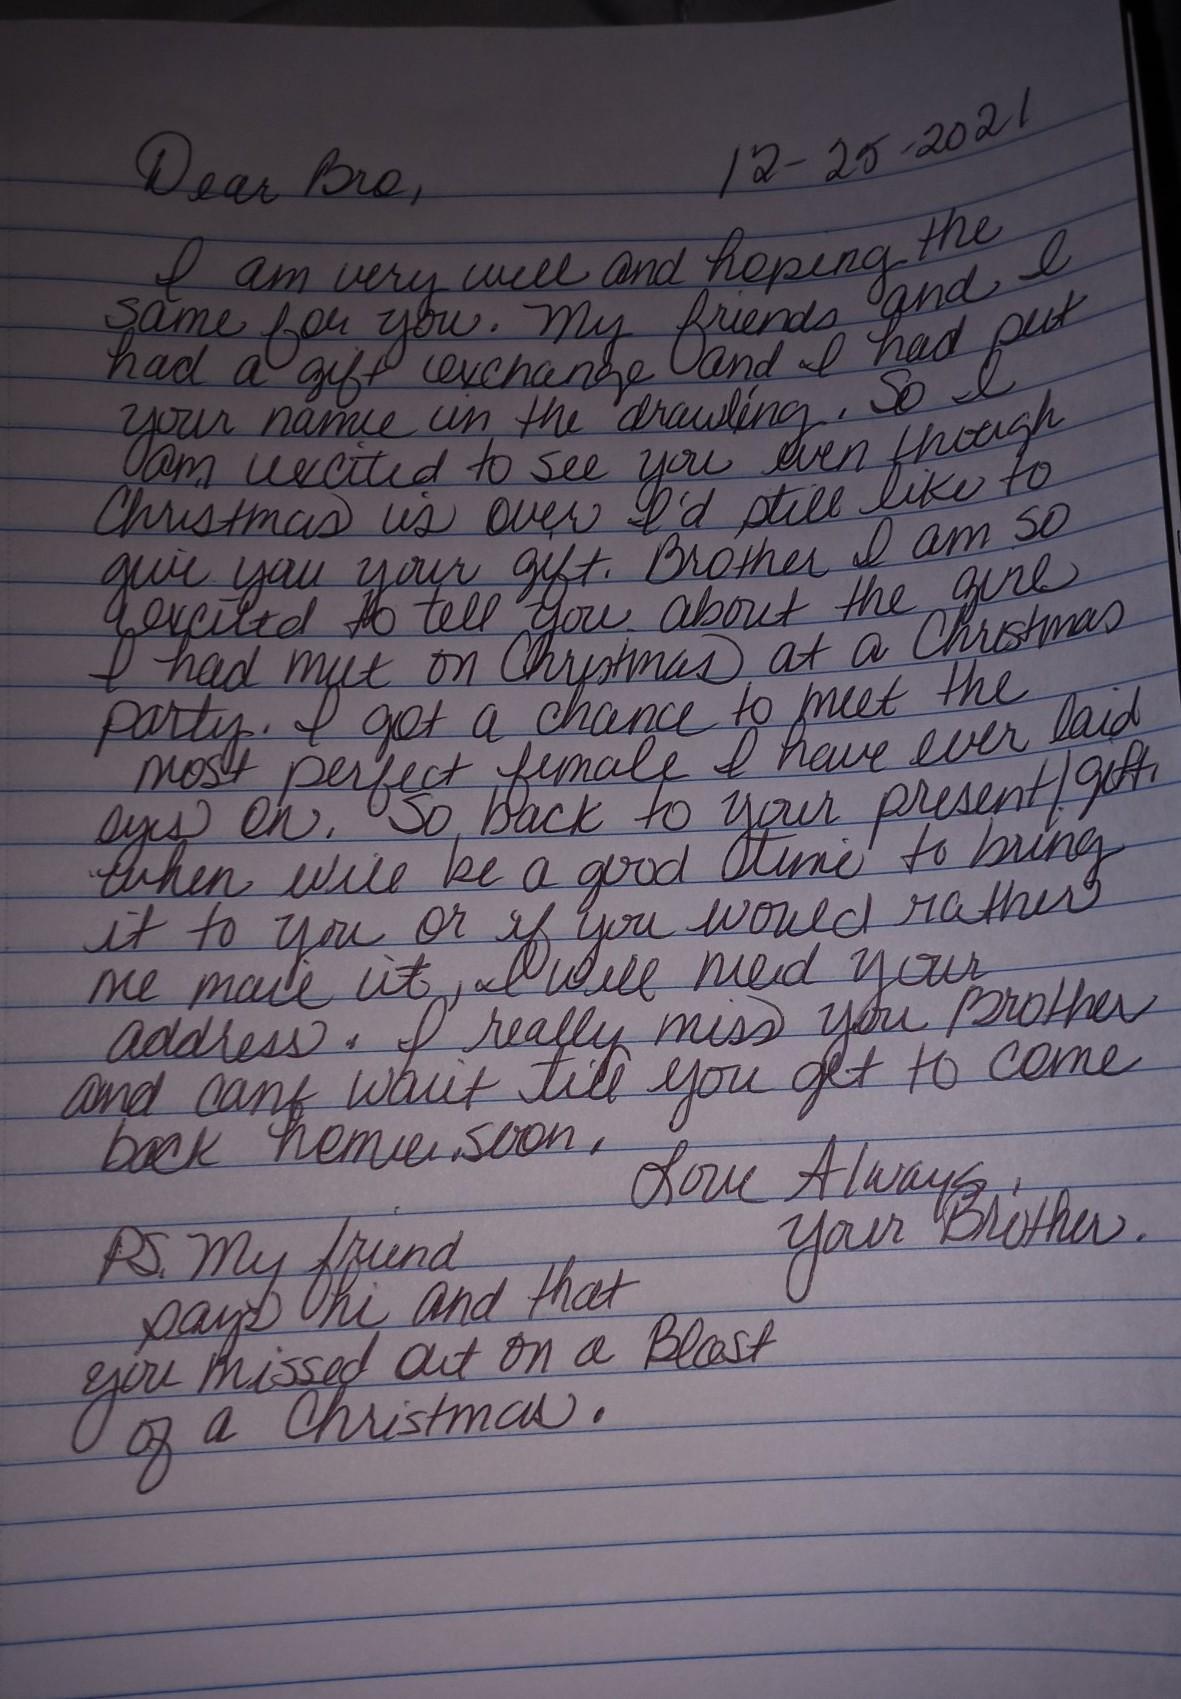 12-25-2021
Dear Bro,
I am very well and hoping the
same for you. My friends and I
had a gift exchange and I had put
your name in the drawling. So I
am excited to see you even though
Christmas is over I'd still like to
give you your gift. Brother I am so
excited to tell you about the girl
I had met on Christmas at a Christmas
party. I got a chance to meet the
most perfect female I have ever laid
eyes on. So back to your present/gift,
when will be a good time to bring
it to you or if you would rather
me mail it, I will need your
address. I really miss you Brother
and cant wait till you get to come
back home soon.
Love Always,
Your Brother.
PS. My friend
says hi and that
you missed out on a Blast
of a Christmas.